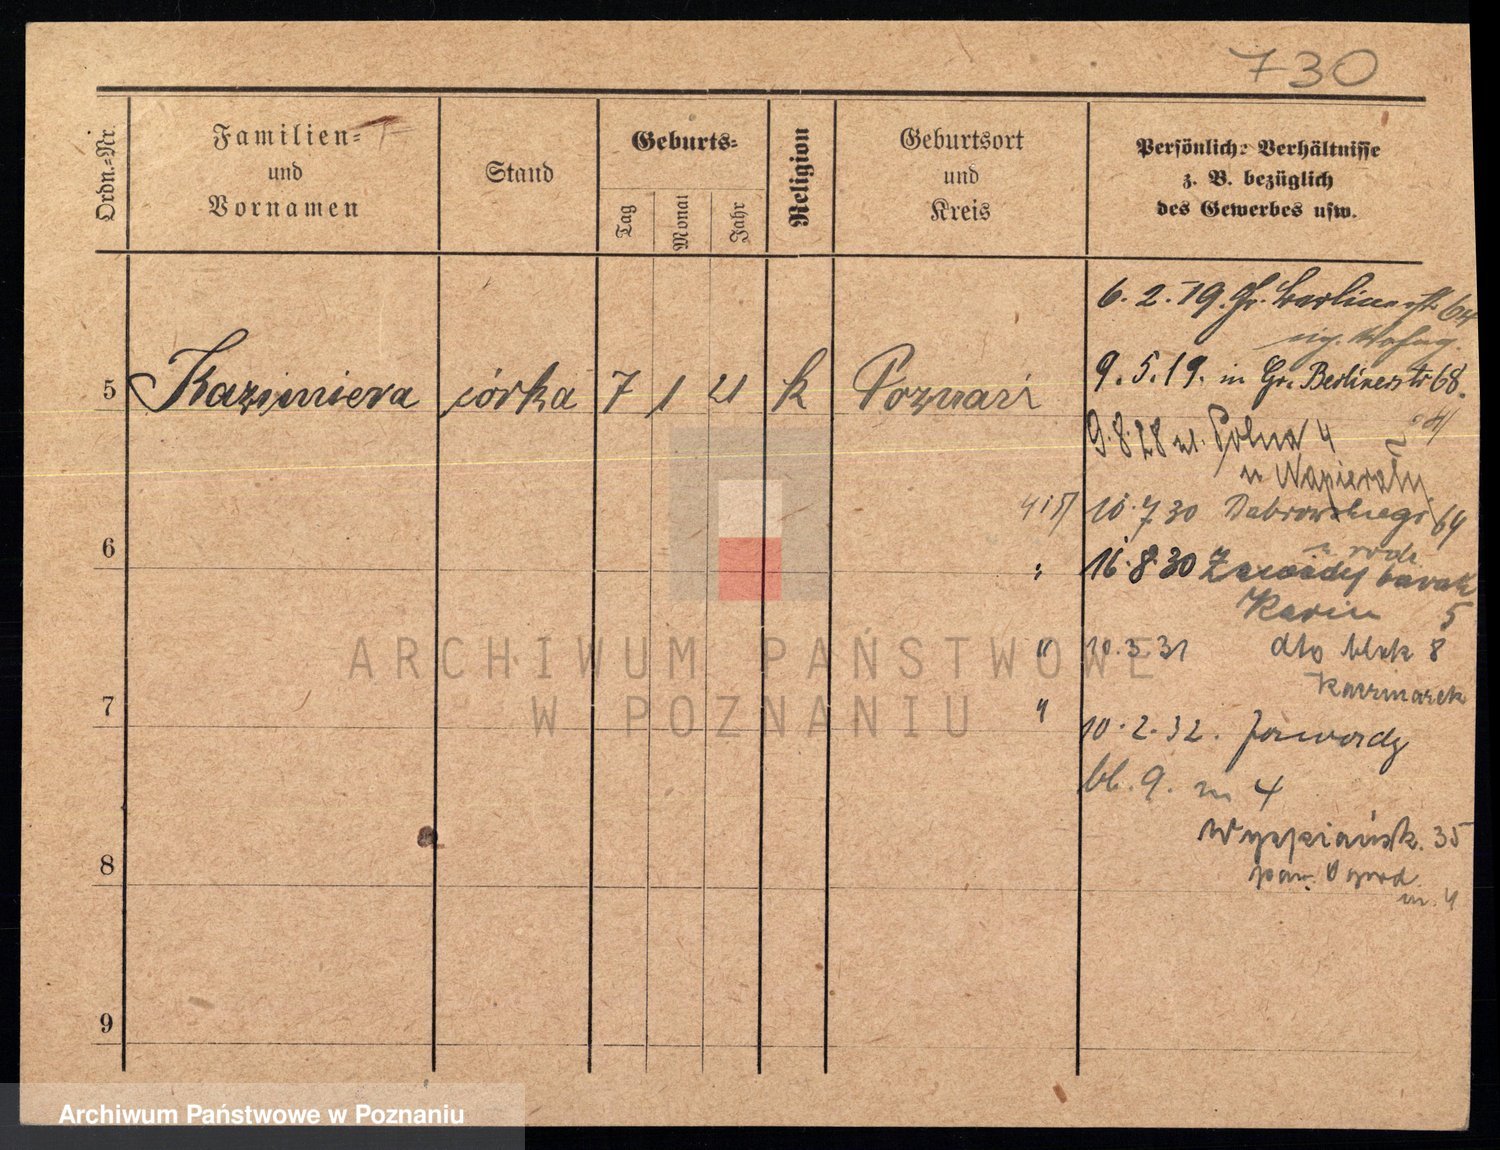 730
Ordn.-Nr.
Familien-
und
Vornamen
Stand
Geburts-
Tag
Monat
Jahr
Religion
Geburtsort
und
Kreis
Persönliche Verhältnisse
z. B. bezüglich
des Gewerbes usw.
6. 2. 19. Gr. Berlinerstr. 64
eig. Wohng.
5 Kazimiera córka 7 1 21 k Poznań
9. 5. 19. in Gr. Berlinerstr 68.
9. 8. 28 ul. Polna 4
u Napierały
10. 7. 30 Dabrowskiego 64
16. 8. 30 Zawady barak
5
" 10. 3. 31 dto blok 8
Kaczmarek
" 10. 2. 32. Zawady
bl. 9. m 4
Wyspiańsk. 35
Ogrod
m. 4
6
7
8
9
ARCHIWUM PAŃSTWOWE
W POZNANIU
Archiwum Państwowe w Poznaniu